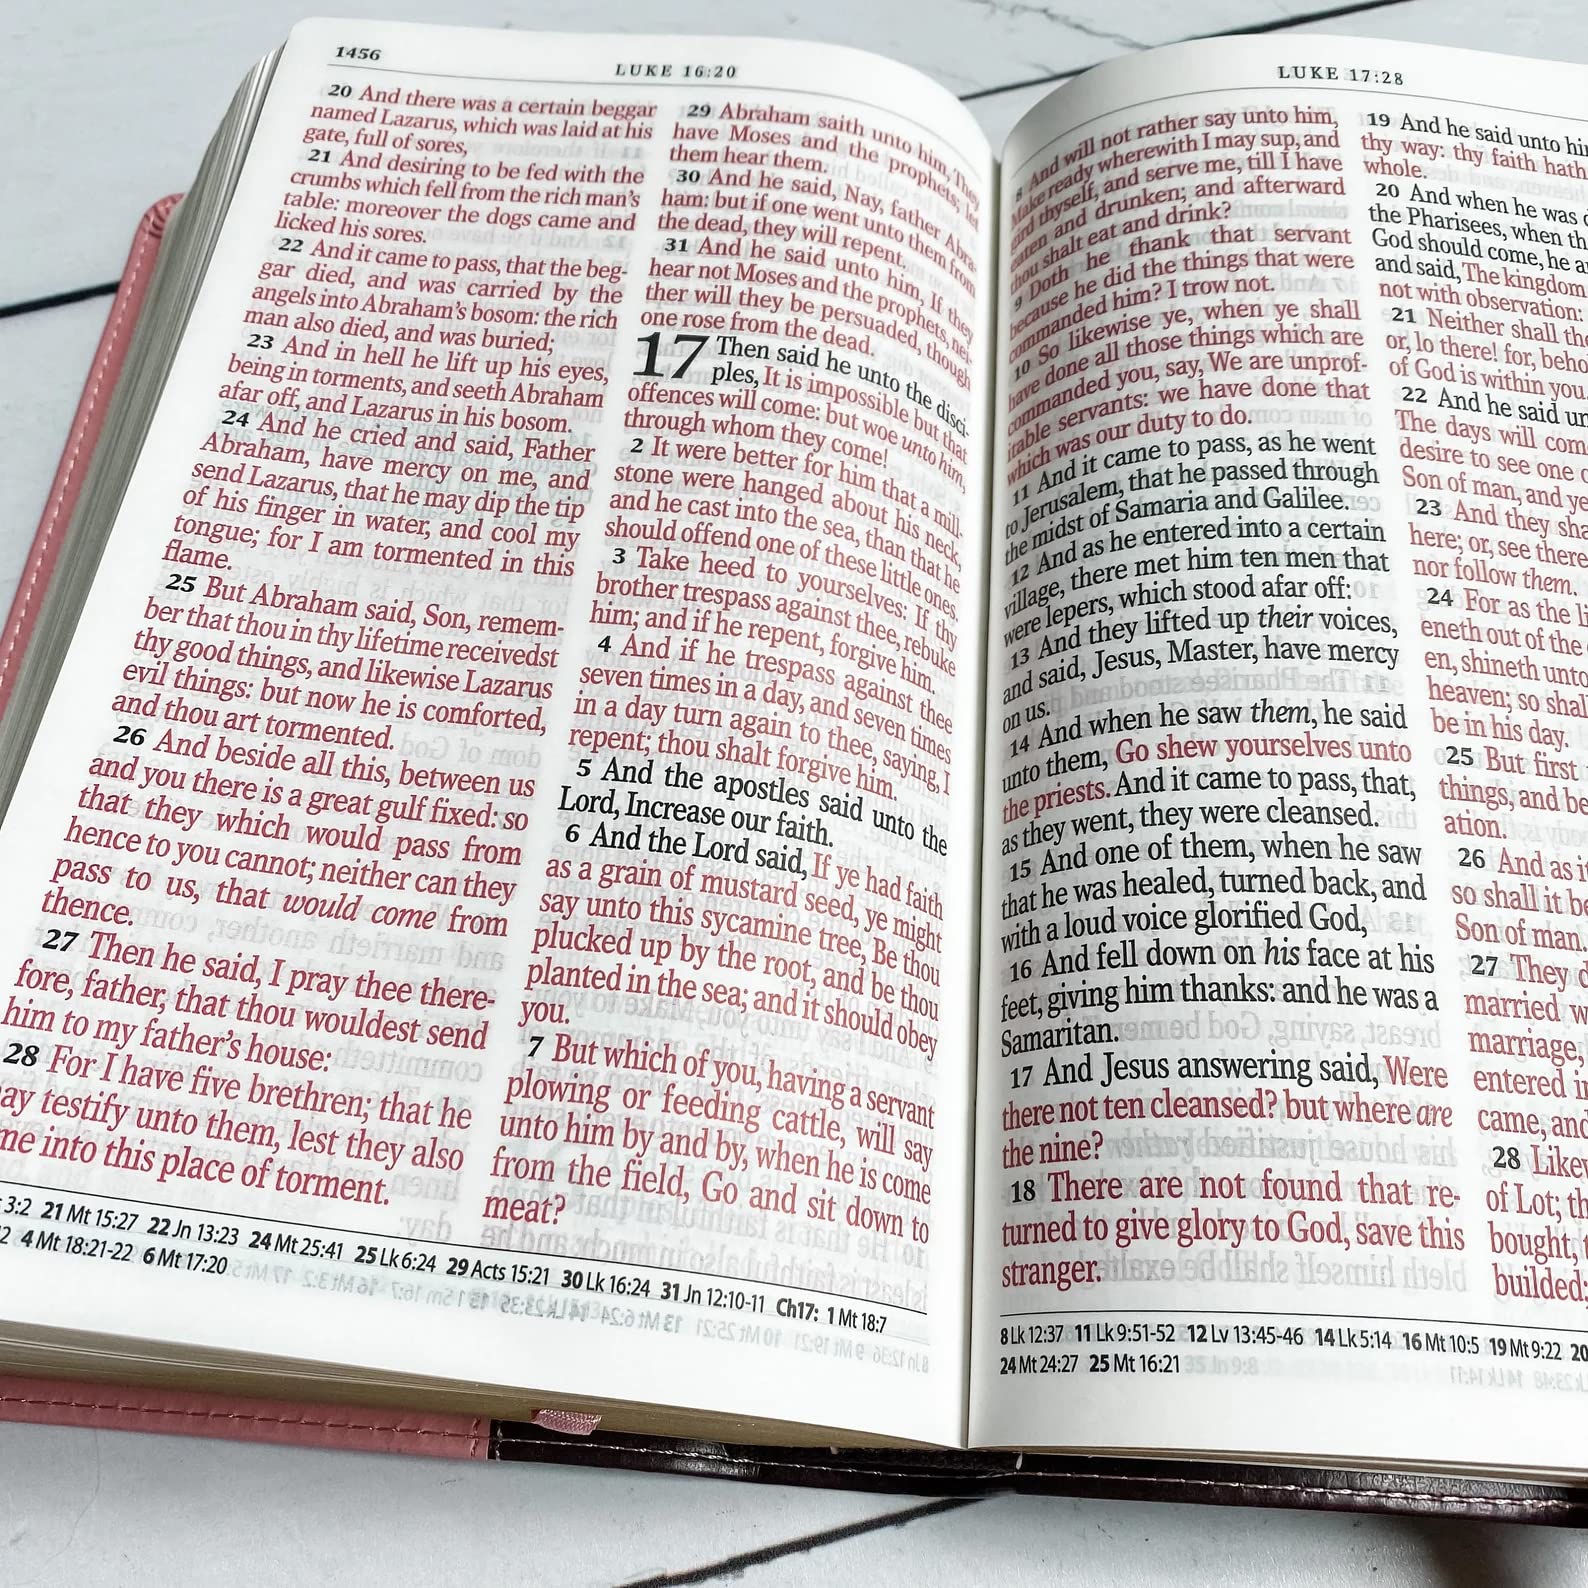 1456
LUKE 16:20
20 And there was a certain beggar
named Lazarus, which was laid at his
gate, full of sores,
21 And desiring to be fed with the
crumbs which fell from the rich man's
table: moreover the dogs came and
licked his sores.
22 And it came to pass, that the beg-
gar died, and was carried by the
angels into Abraham's bosom: the rich
man also died, and was buried;
23 And in hell he lift up his eyes,
being in torments, and seeth Abraham
afar off, and Lazarus in his bosom.
24 And he cried and said, Father
Abraham, have mercy on me, and
send Lazarus, that he may dip the tip
of his finger in water, and cool my
tongue; for I am tormented in this
flame.
25 But Abraham said, Son, remem-
ber that thou in thy lifetime receivedst
thy good things, and likewise Lazarus
evil things: but now he is comforted,
and thou art tormented.
26 And beside all this, between us
and you there is a great gulf fixed: so
that they which would pass from
hence to you cannot; neither can they
pass to us, that would come from
thence.
27 Then he said, I pray thee there-
fore, father, that thou wouldest send
him to my father's house:
28 For I have five brethren; that he
ay testify unto them, lest they also
me into this place of torment.
29 Abraham saith unto him, They
have Moses and the prophets; let
them hear them.
30 And he said, Nay, father Abra-
ham: but if one went unto them from
the dead, they will repent.
31 And he said unto him, If they
hear not Moses and the prophets, nei-
ther will they be persuaded, though
one rose from the dead.
17 Then said he unto the disci-
ples, It is impossible but that
offences will come: but woe unto him,
through whom they come!
2 It were better for him that a mill-
stone were hanged about his neck,
and he cast into the sea, than that he
should offend one of these little ones.
3 Take heed to yourselves: If thy
brother trespass against thee, rebuke
him; and if he repent, forgive him.
4 And if he trespass against thee
seven times in a day, and seven times
in a day turn again to thee, saying, I
repent; thou shalt forgive him.
5 And the apostles said unto the
Lord, Increase our faith.
6 And the Lord said, If ye had faith
as a grain of mustard seed, ye might
say unto this sycamine tree, Be thou
plucked up by the root, and be thou
planted in the sea; and it should obey
you.
7 But which of you, having a servant
plowing or feeding cattle, will say
unto him by and by, when he is come
from the field, Go and sit down to
meat?
3:2 21 Mt 15:27 22 Jn 13:23 24 Mt 25:41 25 Lk 6:24 29 Acts 15:21 30 Lk 16:24 31 Jn 12:10-11 Ch17: 1 Mt 18:7
2 4 Mt 18:21-22 6 Mt 17:20
LUKE 17:28
8 And will not rather say unto him,
Make ready wherewith I may sup, and
gird thyself, and serve me, till I have
eaten and drunken; and afterward
thou shalt eat and drink?
9 Doth he thank that servant
because he did the things that were
commanded him? I trow not.
10 So likewise ye, when ye shall
have done all those things which are
commanded you, say, We are unprof-
itable servants: we have done that
which was our duty to do.
11 And it came to pass, as he went
to Jerusalem, that he passed through
the midst of Samaria and Galilee.
12 And as he entered into a certain
village, there met him ten men that
were lepers, which stood afar off:
13 And they lifted up their voices,
and said, Jesus, Master, have mercy
on us.
14 And when he saw them, he said
unto them, Go shew yourselves unto
the priests. And it came to pass, that,
as they went, they were cleansed.
15 And one of them, when he saw
that he was healed, turned back, and
with a loud voice glorified God,
16 And fell down on his face at his
feet, giving him thanks: and he was a
Samaritan.
17 And Jesus answering said, Were
there not ten cleansed? but where are
the nine?
18 There are not found that re-
turned to give glory to God, save this
stranger.
19 And he said unto hi
thy way: thy faith hath
whole.
20 And when he was d
the Pharisees, when th
God should come, he a
and said, The kingdom
not with observation:
21 Neither shall the
or, lo there! for, beho
of God is within you
22 And he said un
The days will com
desire to see one o
Son of man, and ye
23 And they sha
here; or, see there
nor follow them.
24 For as the li
eneth out of the
en, shineth unto
heaven; so shal
be in his day.
25 But first
things, and be
ation.
26 And as i
so shall it be
Son of man.
27 They d
married w
marriage,
entered in
came, and
28 Likew
of Lot; th
bought, t
builded;
8 Lk 12:37 11 Lk 9:51-52 12 Lv 13:45-46 14 Lk 5:14 16 Mt 10:5 19 Mt 9:22 20
24 Mt 24:27 25 Mt 16:21